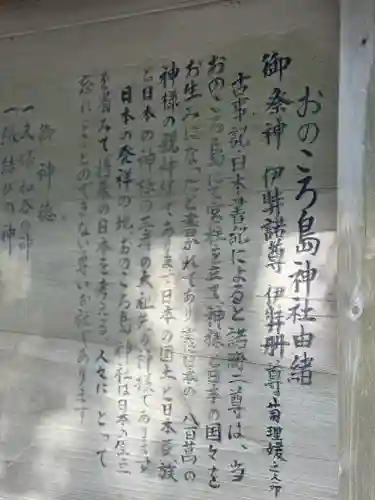 おのころ島神社由緒
御祭神 伊弉諾尊 伊弉册尊 菊理媛之命
古事記日本書記によると諾冉二尊は、当
おのころ島にて宮柱を立て神様と日本の国々を
お生みになったと書かれてあり 日本の 八百萬の
神様の親神様であります 日本の国土と日本民族
と日本の神様の
日本の発祥の地おのころ島神社は日本の
を省みて将来の日本を考える人々にとって
忘れることのできない尊いお社であります
御神徳
一、夫婦和合の神
一、縁結びの神